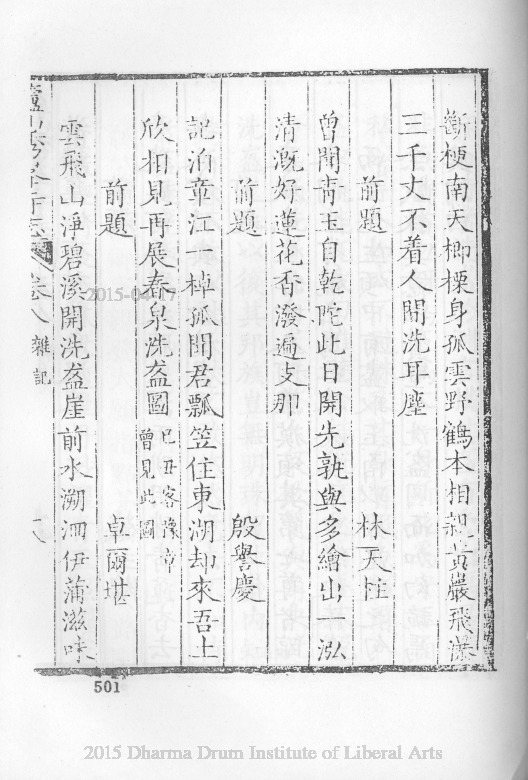 斷梗南天楖檪身孤雲野鶴本相親黃巖飛瀑
三千丈不着人間洗耳塵
前題　林天柱
曾聞青玉自乾陀此日開先孰與多繪出一泓
清溉好蓮花香潑遍支那
前題　殷譽慶
記泊章江一棹孤聞君瓢笠住東湖却來吾土
欣相見再展春泉洗盋圖己丑客豫章曾見此圖
前題　卓爾堪
雲飛山淨碧溪開洗盋崖前水溯洄伊蒲滋味
卷八 雜記
501
2015-04-17
2015 Dharma Drum Institute of Liberal Arts